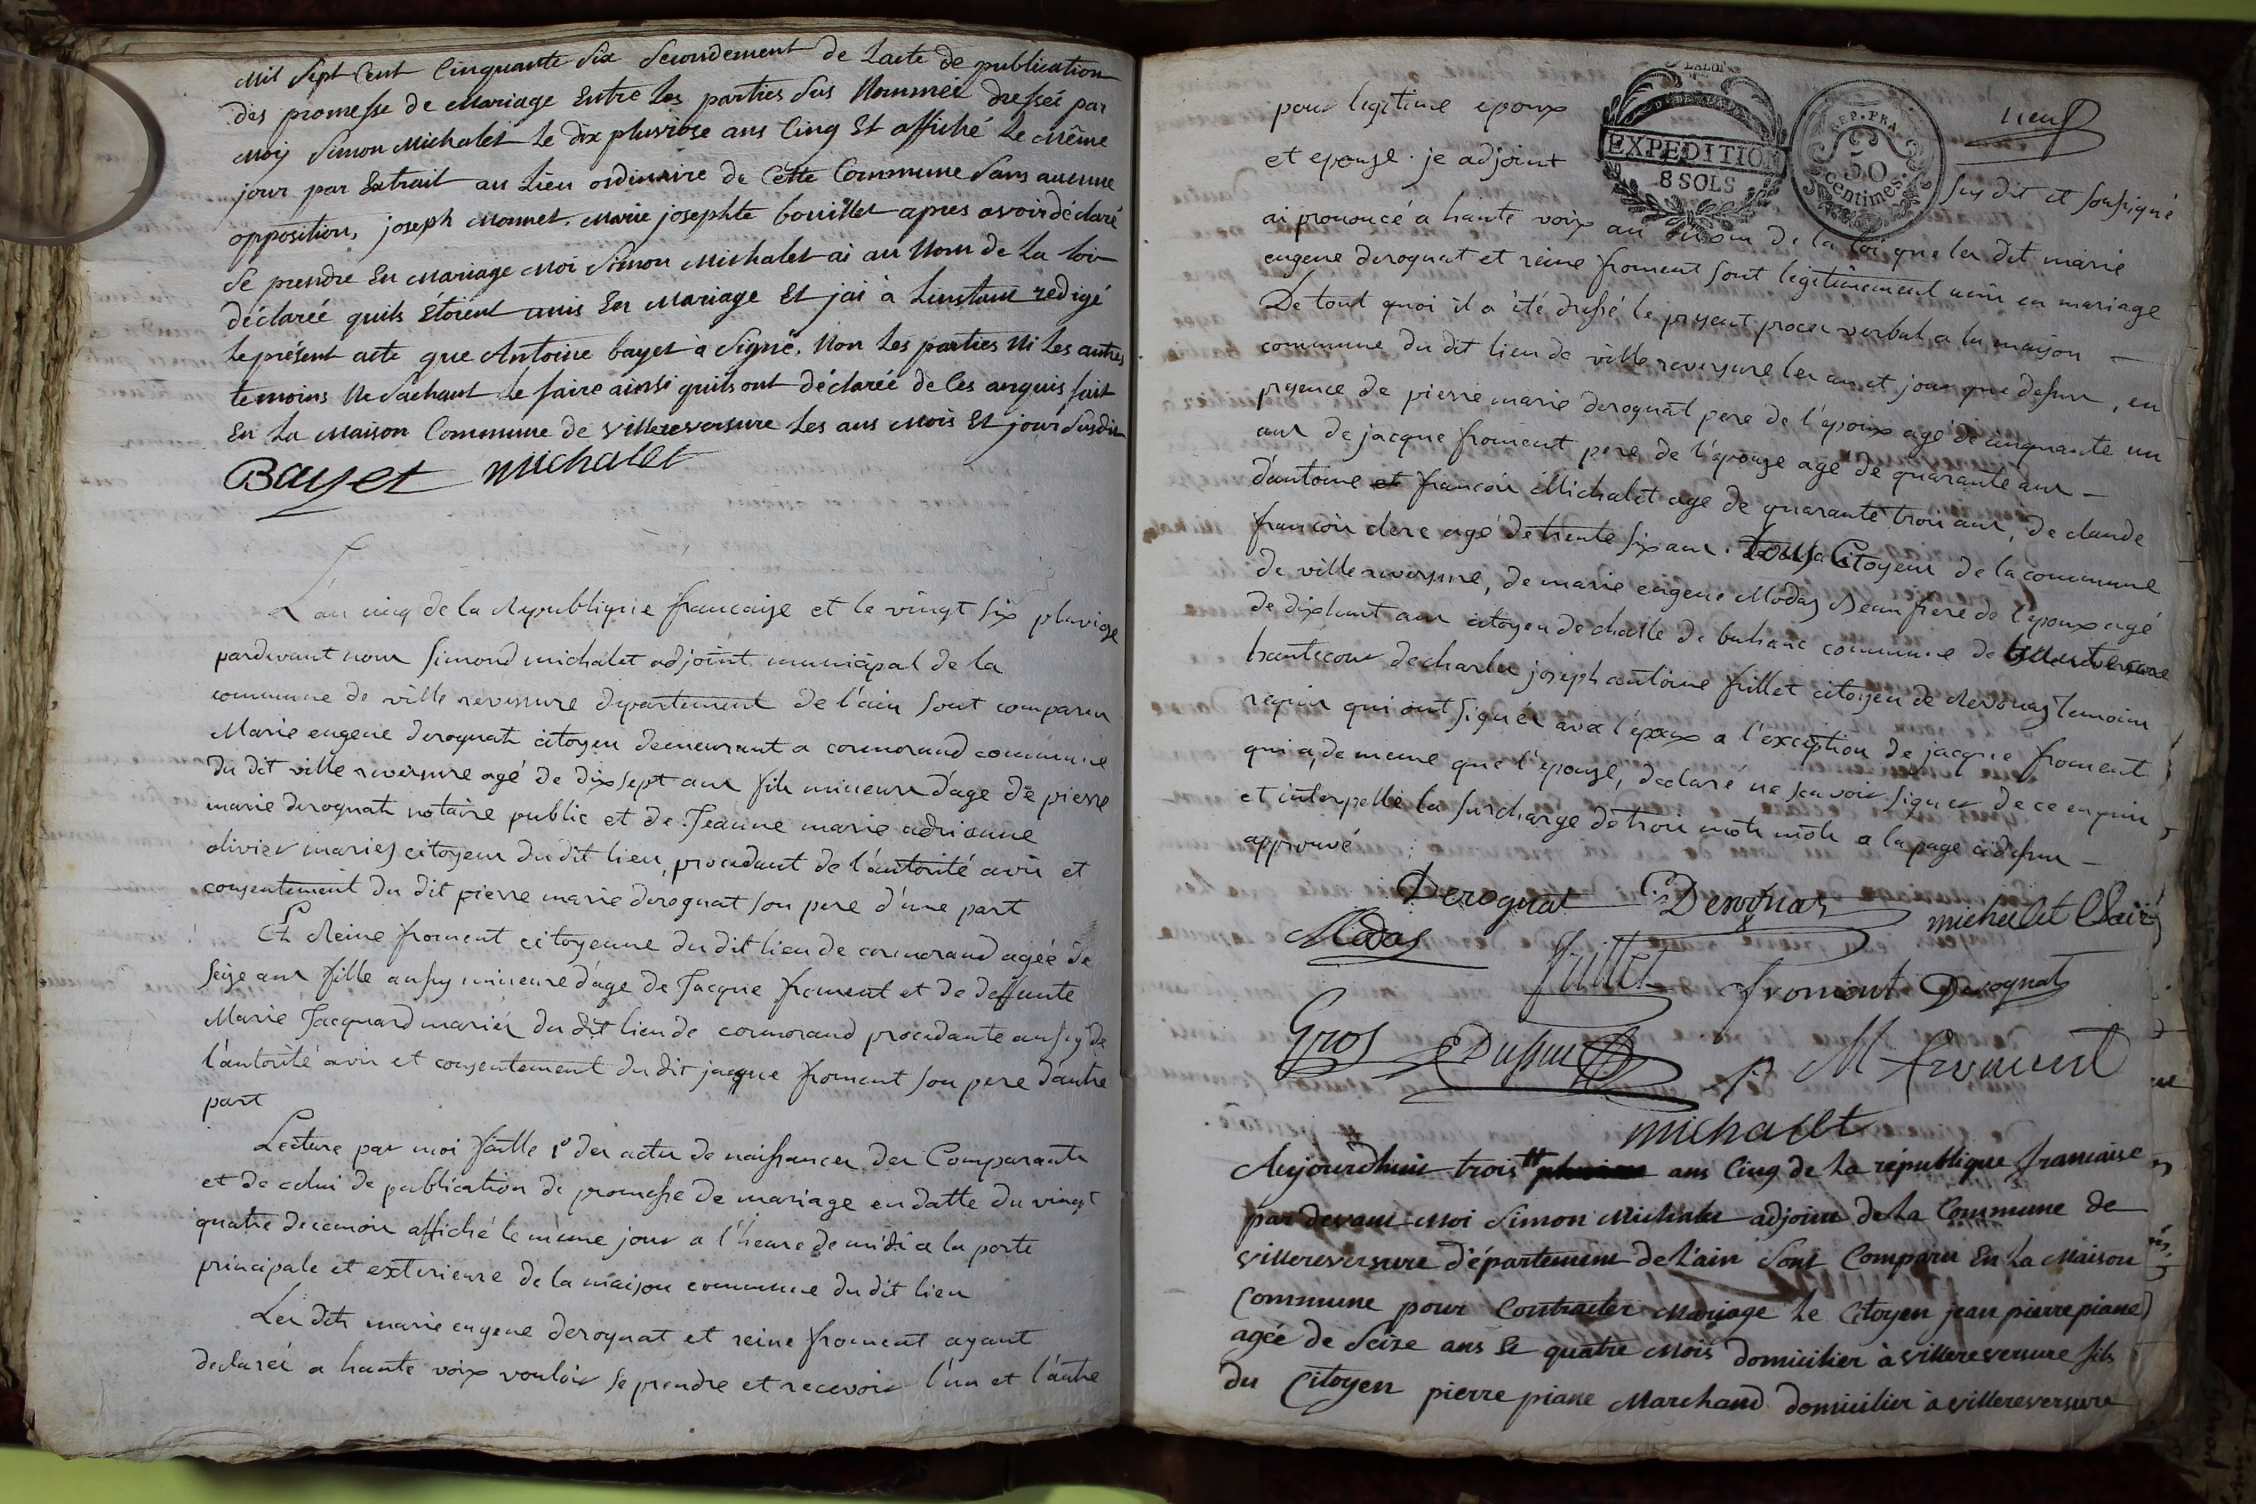 Mil Sept Cent Cinquante Six Secondement de Lacte de publication
des promesse de Mariage Entre Les parties Sus Nommée dressée par
Moy Simon Michalet Le dix pluviose ans Cinq Et affiché Le même
jour par Extrait au Lieu ordinaire de Cette Commune Sans aucune
opposition, joseph Monnet. Marie josephte bouillet apres avoir déclaré
Se prendre En Mariage Moi Simon Michalet ai au Nom de La Loi
déclarée quils Étoient unis En Mariage Et jai à Linstant redigé
Le présent acte que Antoine bayet à Signé. Non Les parties Ni Les autres
temoins Ne Sachant Le faire ainsi quils ont déclarée de Ces anquis fait
En La Maison Commune de Villereversure Les ans Mois Et jour Susdit
Bayet michalet
L'an cinq de la Republique francaise et le vingt six pluviose
pardevant nous simond michalet adjoint municipal de la
commune de ville reversure departement de l'ain sont comparus
Marie eugene deroguat citoyen demeurant a cormorand commune
du dit ville reversure agé de dix sept ans fils mineure d'age de pierre
marie deroguat notaire public et de Jeanne marie adrianne
olivier mariés citoyens du dit lieu, procedant de l'autorité avis et
consentement du dit pierre marie deroguat son pere d'une part
Et Reine froment citoyenne du dit lieu de cormorand agée de
seize ans fille aussy mineure d'age de Jacque froment et de deffunte
Marie Jacquard mariés du dit lieu de cormorand procedante aussy de
l'autorité avis et consentement du dit jacque froment son pere d'autre
part
Lecture par moi faitte 1º des actes de naissances des Comparants
et de celui de publication de promesse de mariage en datte du vingt
quatre du affiché le même jour a l'heure de midi a la porte
principale et exterieure de la maison commune du dit lieu
Les dits marie eugene deroguat et reine froment ayant
declarés a haute voix vouloir se prendre et recevoir l'un et l'autre
pour legitime epoux
et epouse. je adjoint
EXPEDITION
8 SOLS
REP. FRA.
50
centimes.
neuf
sus dit et soussigné
ai prononcé a haute voix au nom de la loi que les dit marie
eugene deroguat et reine froment sont legitimement unis en mariage
De tout quoi il a été dressé le present proces verbal a la maison
commune du dit lieu de ville reversure les an et jour que dessus, en
presence de pierre marie deroguat pere de l'epoux agé de cinquante un
ans de jacque froment pere de l'epouse agé de quarante ans
d'antoine et francois Michalet agé de quarante trois ans, de claude
francois clerc agé de trente six ans. Tous Citoyens de la commune
de ville reversure, de marie eugene Modas frere de l'epoux agé
de dixhuit ans citoyen de de commune de
hautecour de charles joseph antoine fillet citoyen de temoins
requis qui ont signés avec l'epoux a l'exception de jacque froment
qui a, de meme que l'epouse, declaré ne scavoir signer de ce enquis
et interpellé la surcharge de trois mots mots a la page cidessus
approuvé
Deroguat
Modas michalet Clairc
fillet froment Deroguat
Gros M froment
michalet
Aujourdhuis trois ans Cinq de La république francaise
par devant Moi Simon Michalet adjoint de La Commune de
villereversure département de Lain Sont Comparu En La Maison
Commune pour Contracter Mariage Le Citoyen jean pierre piane
agée de Seize ans Et quatre Mois domicilier à villereversure fils
du Citoyen pierre piane Marchand domicilier à villereversure